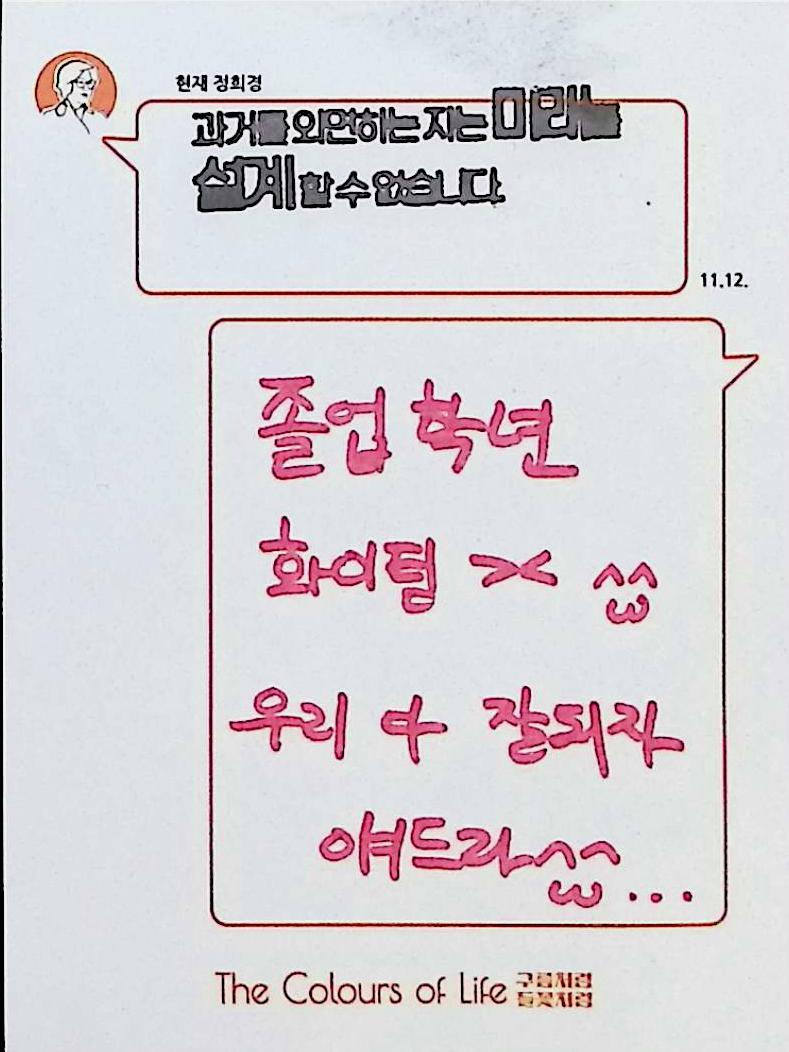 현재 정희경
과거를 외면하는 자는 미래를
설계 할 수 없습니다.
11.12.
졸업 학년
화이팅 >< ^^ω
우리 다 잘되자
얘드라 ^^ω...
The Colours of Life 구름처럼
들꽃처럼